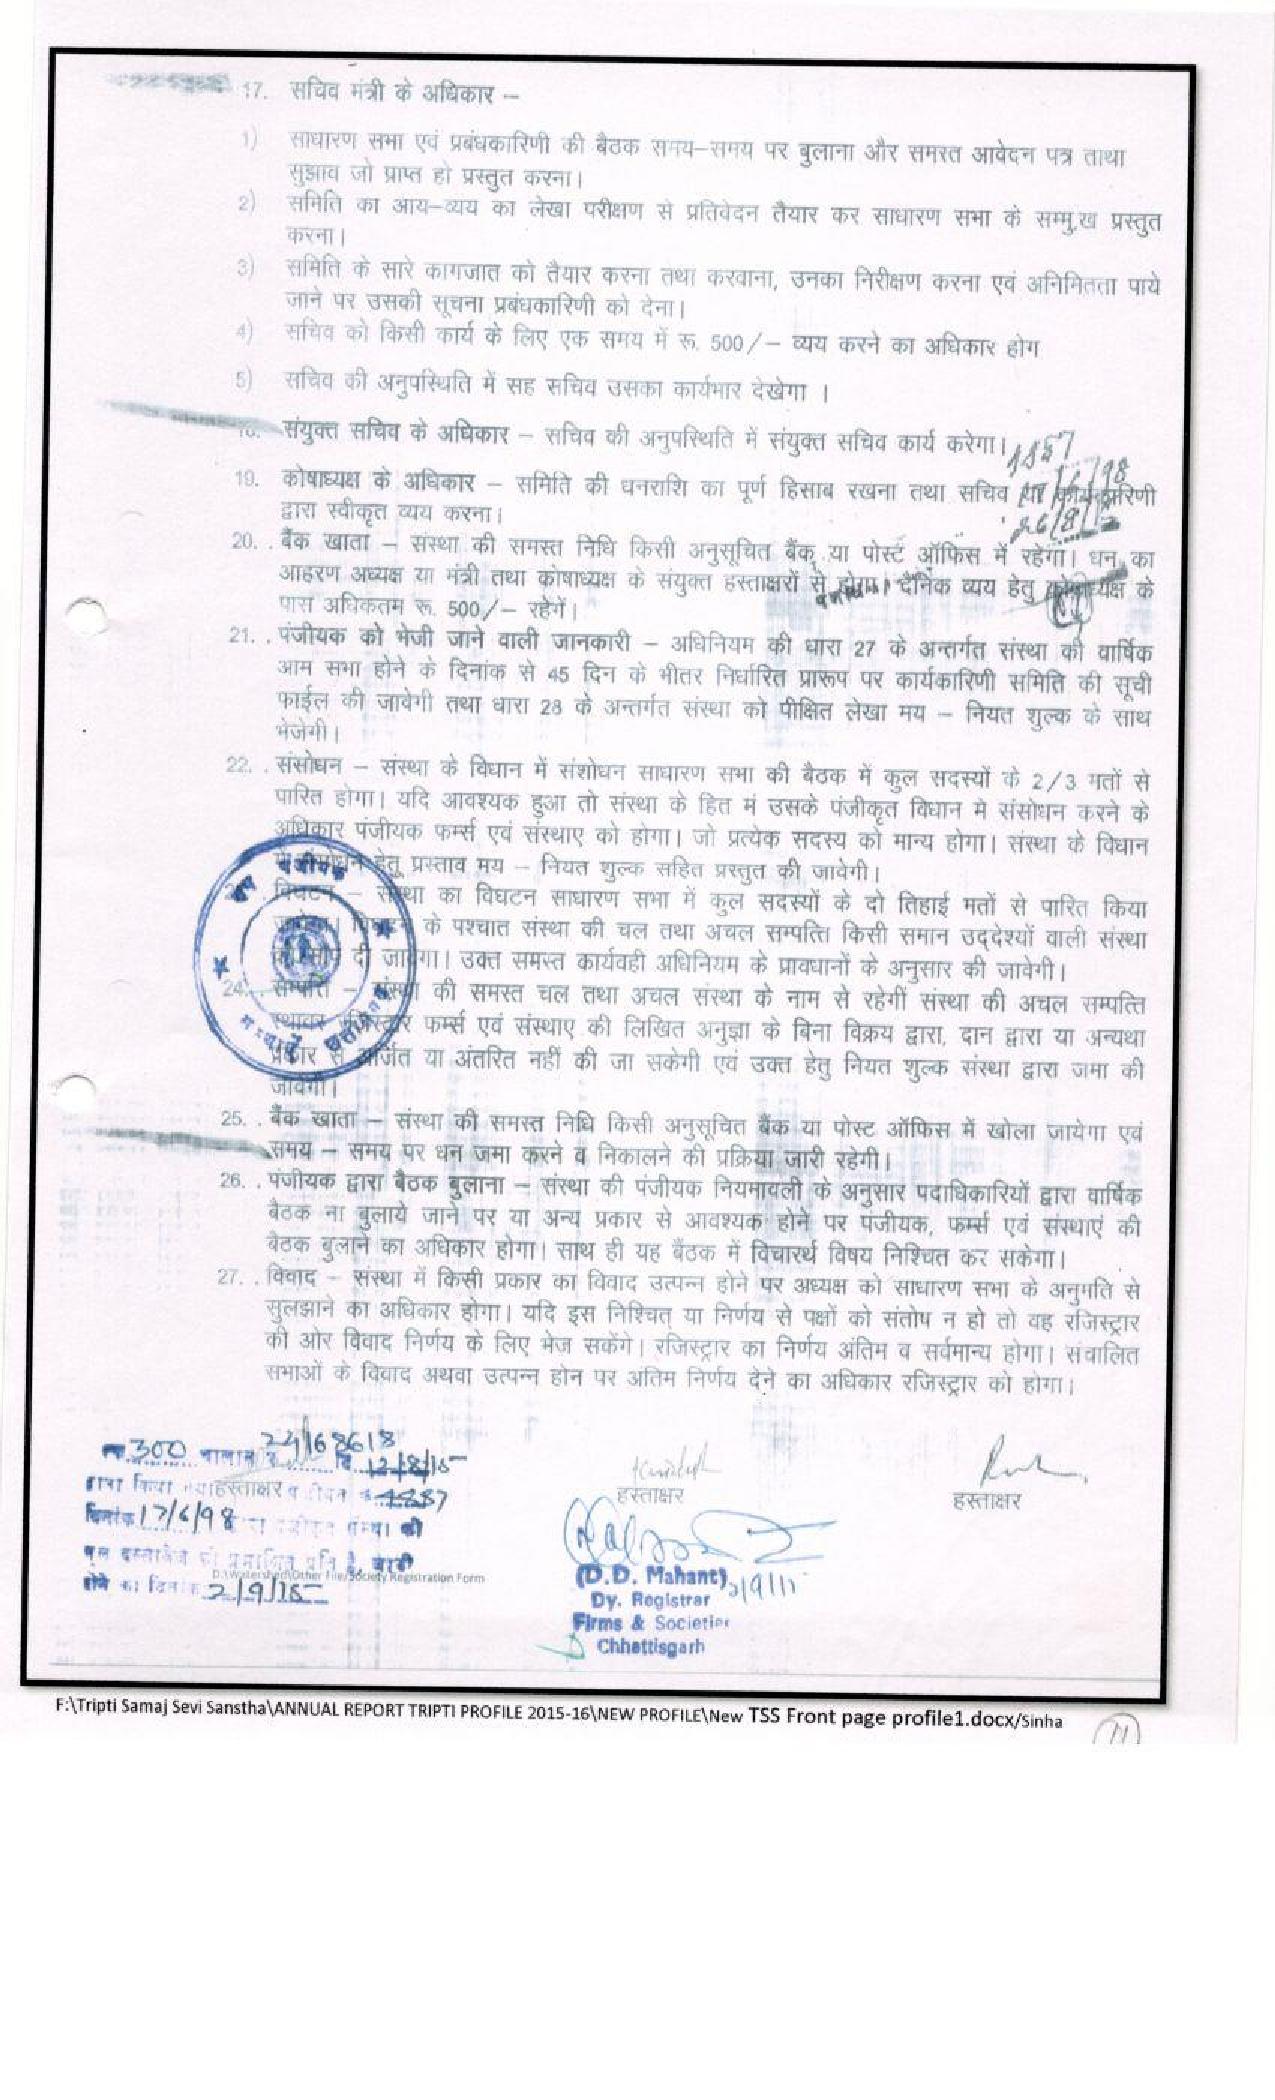 17. सचिव मंत्री के अधिकार –
1) साधारण सभा एवं प्रबंधकारिणी की बैठक समय–समय पर बुलाना और समस्त आवेदन पत्र ताथा
सुझाव जो प्राप्त हो प्रस्तुत करना।
2) समिति का आय–व्यय का लेखा परीक्षण से प्रतिवेदन तैयार कर साधारण सभा के सम्मु.ख प्रस्तुत
करना।
3) समिति के सारे कागजात को तैयार करना तथा करवाना, उनका निरीक्षण करना एवं अनिमितता पाये
जाने पर उसकी सूचना प्रबंधकारिणी को देना।
4) सचिव को किसी कार्य के लिए एक समय में रू. 500/– व्यय करने का अधिकार होग
5) सचिव की अनुपस्थिति में सह सचिव उसका कार्यभार देखेगा ।
संयुक्त सचिव के अधिकार – सचिव की अनुपस्थिति में संयुक्त सचिव कार्य करेगा।
19. कोषाध्यक्ष के अधिकार – समिति की धनराशि का पूर्ण हिसाब रखना तथा सचिव या
द्वारा स्वीकृत व्यय करना।
20. . बैंक खाता – संस्था की समस्त निधि किसी अनुसूचित बैंक या पोस्ट ऑफिस में रहेगा। धन का
आहरण अध्यक्ष या मंत्री तथा कोषाध्यक्ष के संयुक्त हस्ताक्षरों से होगा। दैनिक व्यय हेतु कोषाध्यक्ष के
पास अधिकतम रू. 500/– रहेगें।
21. . पंजीयक को भेजी जाने वाली जानकारी – अधिनियम की धारा 27 के अन्तर्गत संस्था की वार्षिक
आम सभा होने के दिनांक से 45 दिन के भीतर निर्धारित प्रारूप पर कार्यकारिणी समिति की सूची
फाईल की जावेगी तथा धारा 28 के अन्तर्गत संस्था को पीक्षित लेखा मय – नियत शुल्क के साथ
भेजेगी।
22. . संसोधन – संस्था के विधान में संशोधन साधारण सभा की बैठक में कुल सदस्यों के 2/3 मतों से
पारित होगा। यदि आवश्यक हुआ तो संस्था के हित मं उसके पंजीकृत विधान मे संसोधन करने के
अधिकार पंजीयक फर्म्स एवं संस्थाए को होगा। जो प्रत्येक सदस्य को मान्य होगा। संस्था के विधान
हेतु प्रस्ताव मय – नियत शुल्क सहित प्रस्तुत की जावेगी।
विघटन – संस्था का विघटन साधारण सभा में कुल सदस्यों के दो तिहाई मतों से पारित किया
के पश्चात संस्था की चल तथा अचल सम्पत्ति किसी समान उद्देश्यों वाली संस्था
दी जावेगा। उक्त समस्त कार्यवही अधिनियम के प्रावधानों के अनुसार की जावेगी।
24. . सम्पत्ति – संस्था की समस्त चल तथा अचल संस्था के नाम से रहेगीं संस्था की अचल सम्पत्ति
फर्म्स एवं संस्थाए की लिखित अनुज्ञा के बिना विक्रय द्वारा, दान द्वारा या अन्यथा
प्रकार से अर्जित या अंतरित नहीं की जा सकेगी एवं उक्त हेतु नियत शुल्क संस्था द्वारा जमा की
जावेगी।
25. . बैंक खाता – संस्था की समस्त निधि किसी अनुसूचित बैंक या पोस्ट ऑफिस में खोला जायेगा एवं
समय – समय पर धन जमा करने व निकालने की प्रक्रिया जारी रहेगी।
26. . पंजीयक द्वारा बैठक बुलाना – संस्था की पंजीयक नियमावली के अनुसार पदाधिकारियों द्वारा वार्षिक
बैठक ना बुलाये जाने पर या अन्य प्रकार से आवश्यक होने पर पंजीयक, फर्म्स एवं संस्थाएं की
बैठक बुलाने का अधिकार होगा। साथ ही यह बैठक में विचारर्थ विषय निश्चित कर सकेगा।
27. . विवाद – संस्था में किसी प्रकार का विवाद उत्पन्न होने पर अध्यक्ष को साधारण सभा के अनुमति से
सुलझाने का अधिकार होगा। यदि इस निश्चित् या निर्णय से पक्षों को संतोष न हो तो वह रजिस्ट्रार
की ओर विवाद निर्णय के लिए भेज सकेंगे। रजिस्ट्रार का निर्णय अंतिम व सर्वमान्य होगा। संचालित
सभाओं के विवाद अथवा उत्पन्न होन पर अंतिम निर्णय देने का अधिकार रजिस्ट्रार को होगा।
300 चालान
दि. 12/8/15
हस्ताक्षर हस्ताक्षर हस्ताक्षर
दिनांक 17/6/98
D:\Watershed\Other File/Society Registration Form
होने का दिनांक 2/9/15
(D.D. Mahant)
Dy. Registrar
Firms & Societies
Chhattisgarh
F:\Tripti Samaj Sevi Sanstha\ANNUAL REPORT TRIPTI PROFILE 2015-16\NEW PROFILE\New TSS Front page profile1.docx/Sinha